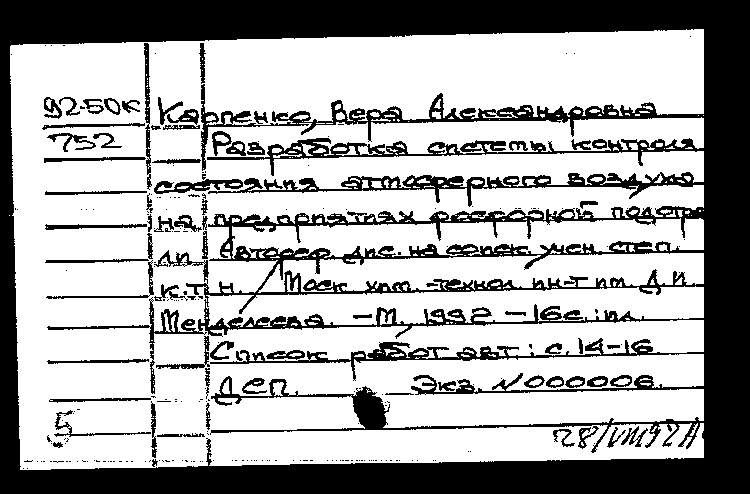 92-50к Карпенко, Вера Александровна
752 Разработка системы контроля
состояния атмосферного воздуха
на предприятиях фосфорной подотра
ли Автореф. дис. на соиск. учен. степ.
к.т.н. Моск. хим.-технол. ин-т им. Д.И.
Менделеева. -М., 1992. -16с.: ил.
Список работ авт.: с. 14-16
ДСП. Экз. №000006.
5 28/VIII92